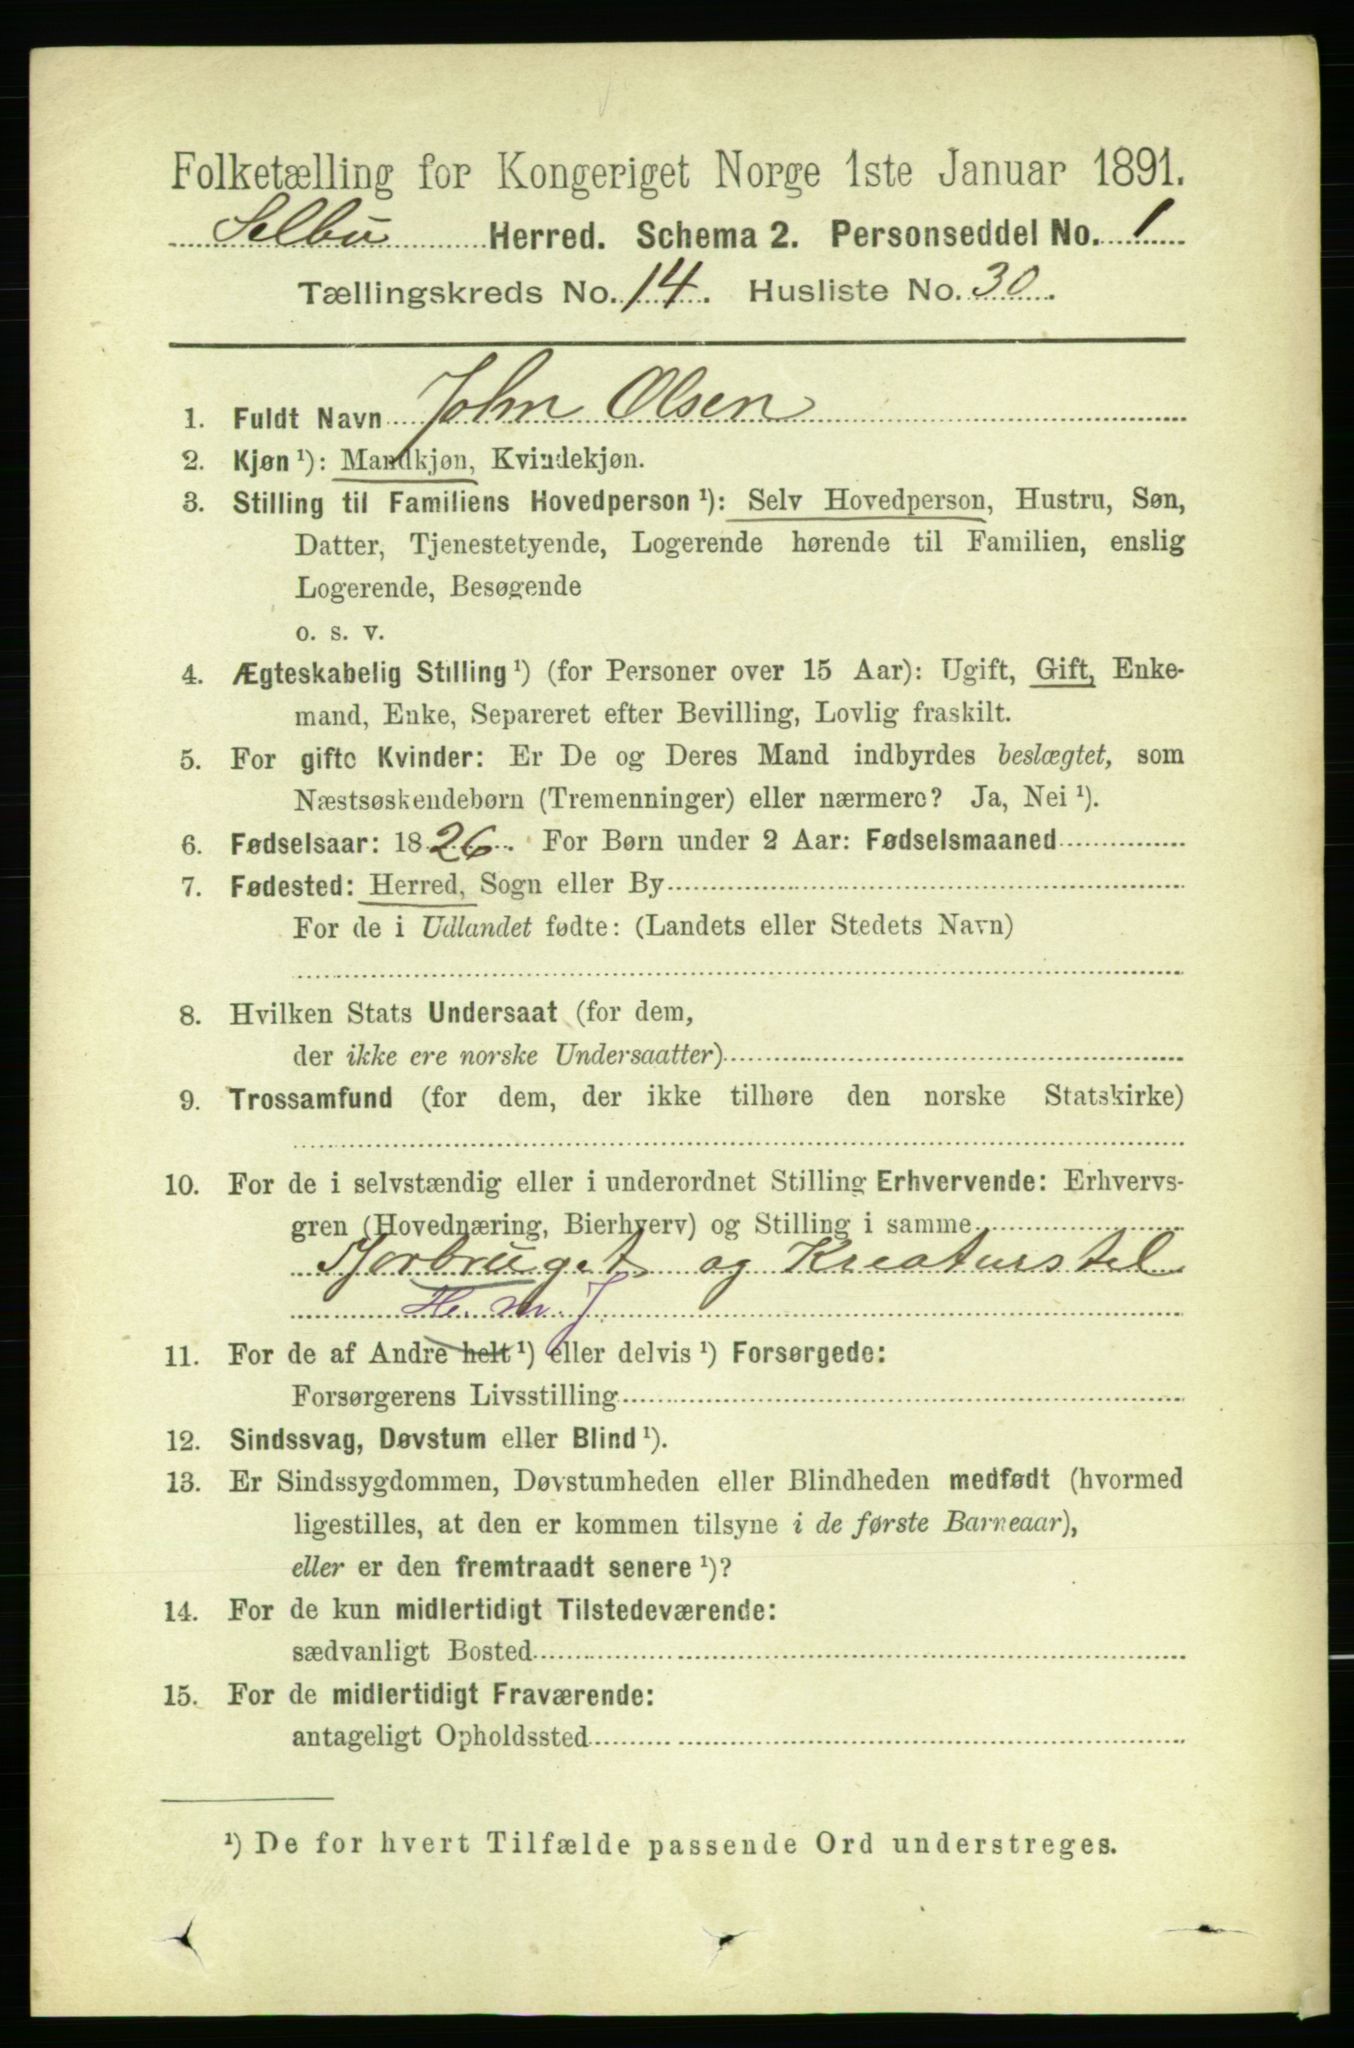 Folketælling for Kongeriget Norge 1ste Januar 1891.
Selbu Herred. Schema 2. Personseddel No. 1
Tællingskreds No. 14. Husliste No. 30.
1. Fuldt Navn John Olsen
2. Kjøn ¹): Mandkjøn, Kvindekjøn.
3. Stilling til Familiens Hovedperson ¹): Selv Hovedperson, Hustru, Søn,
Datter, Tjenestetyende, Logerende hørende til Familien, enslig
Logerende, Besøgende
o. s. v.
4. Ægteskabelig Stilling ¹) (for Personer over 15 Aar): Ugift, Gift, Enke-
mand, Enke, Separeret efter Bevilling, Lovlig fraskilt.
5. For gifte Kvinder: Er De og Deres Mand indbyrdes beslægtet, som
Næstsøskendebørn (Tremenninger) eller nærmere? Ja, Nei ¹).
6. Fødselsaar: 1826. For Børn under 2 Aar: Fødselsmaaned
7. Fødested: Herred, Sogn eller By
For de i Udlandet fødte: (Landets eller Stedets Navn)
8. Hvilken Stats Undersaat (for dem,
der ikke ere norske Undersaatter)
9. Trossamfund (for dem, der ikke tilhøre den norske Statskirke)
10. For de i selvstændig eller i underordnet Stilling Erhvervende: Erhvervs-
gren (Hovednæring, Bierhverv) og Stilling i samme
Sjorbruget og Kreaturstel
11. For de af Andre helt ¹) eller delvis ¹) Forsørgede:
Forsørgerens Livsstilling
12. Sindssvag, Døvstum eller Blind ¹).
13. Er Sindssygdommen, Døvstumheden eller Blindheden medfødt (hvormed
ligestilles, at den er kommen tilsyne i de første Barneaar),
eller er den fremtraadt senere ¹)?
14. For de kun midlertidigt Tilstedeværende:
sædvanligt Bosted
15. For de midlertidigt Fraværende:
antageligt Opholdssted
¹) De for hvert Tilfælde passende Ord understreges.